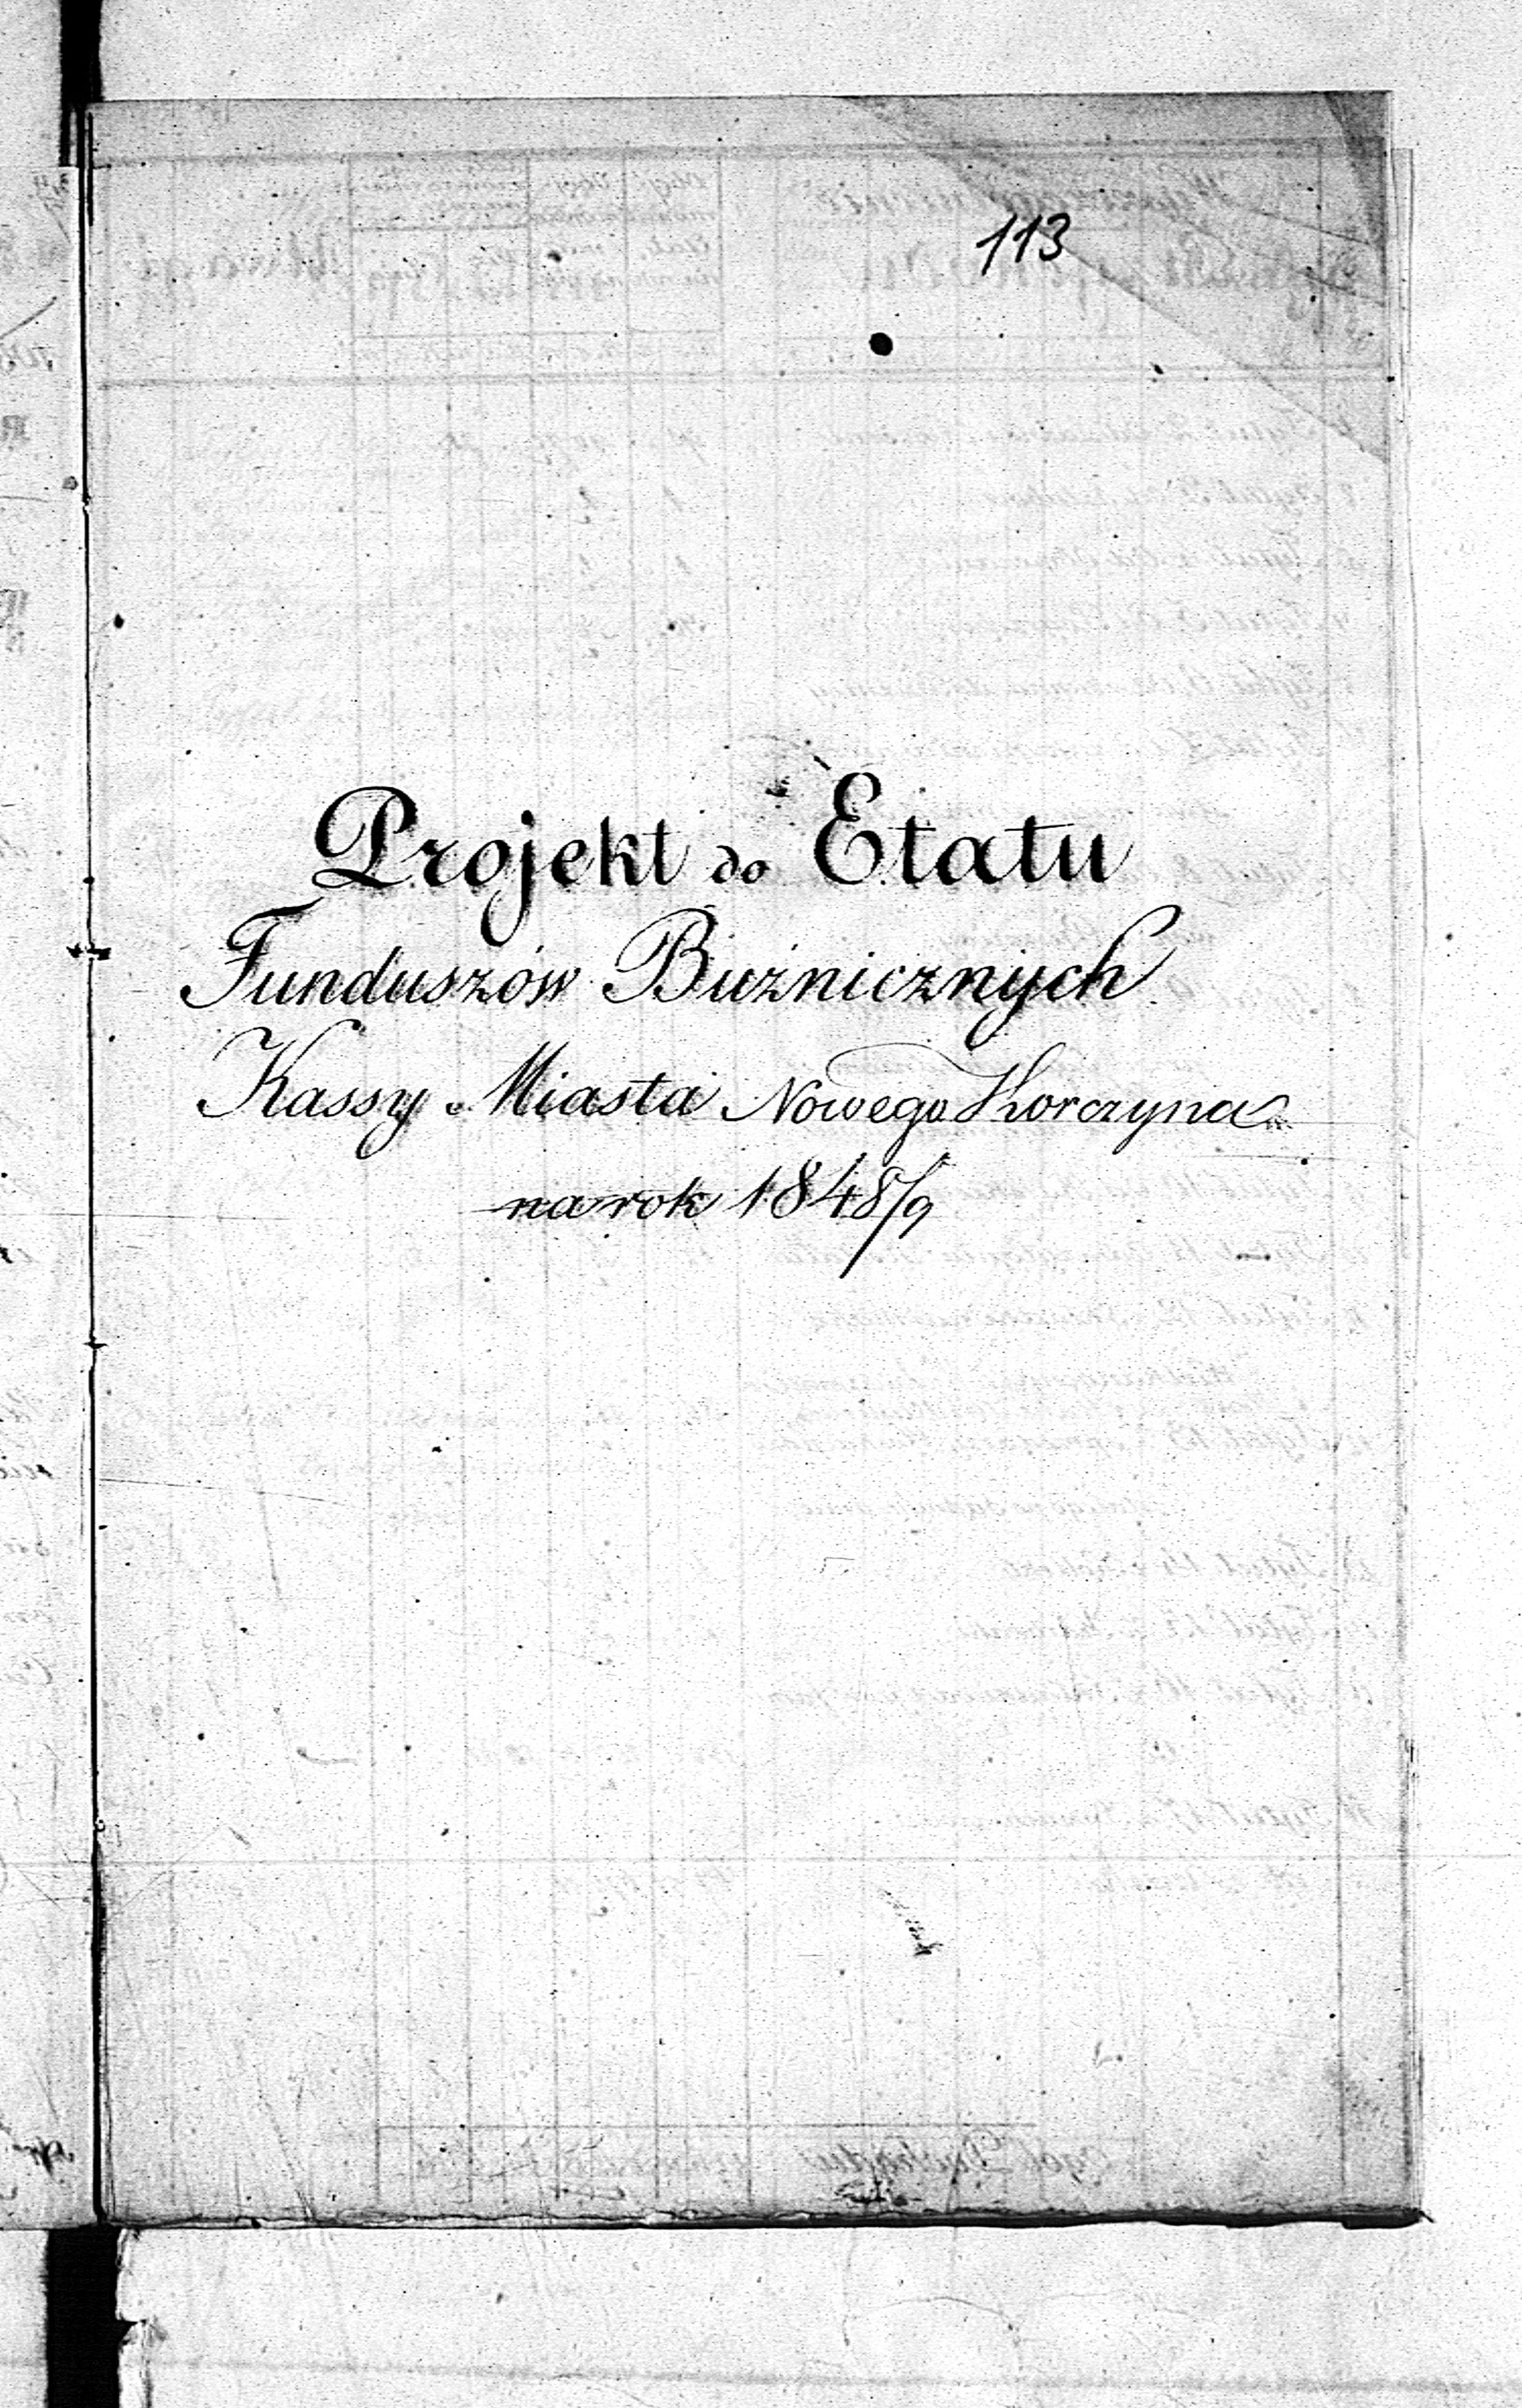 113
Projekt do Etatu
Funduszów Bużnicznych
Kassy Miasta Nowego Korczyna
na rok 1848/9